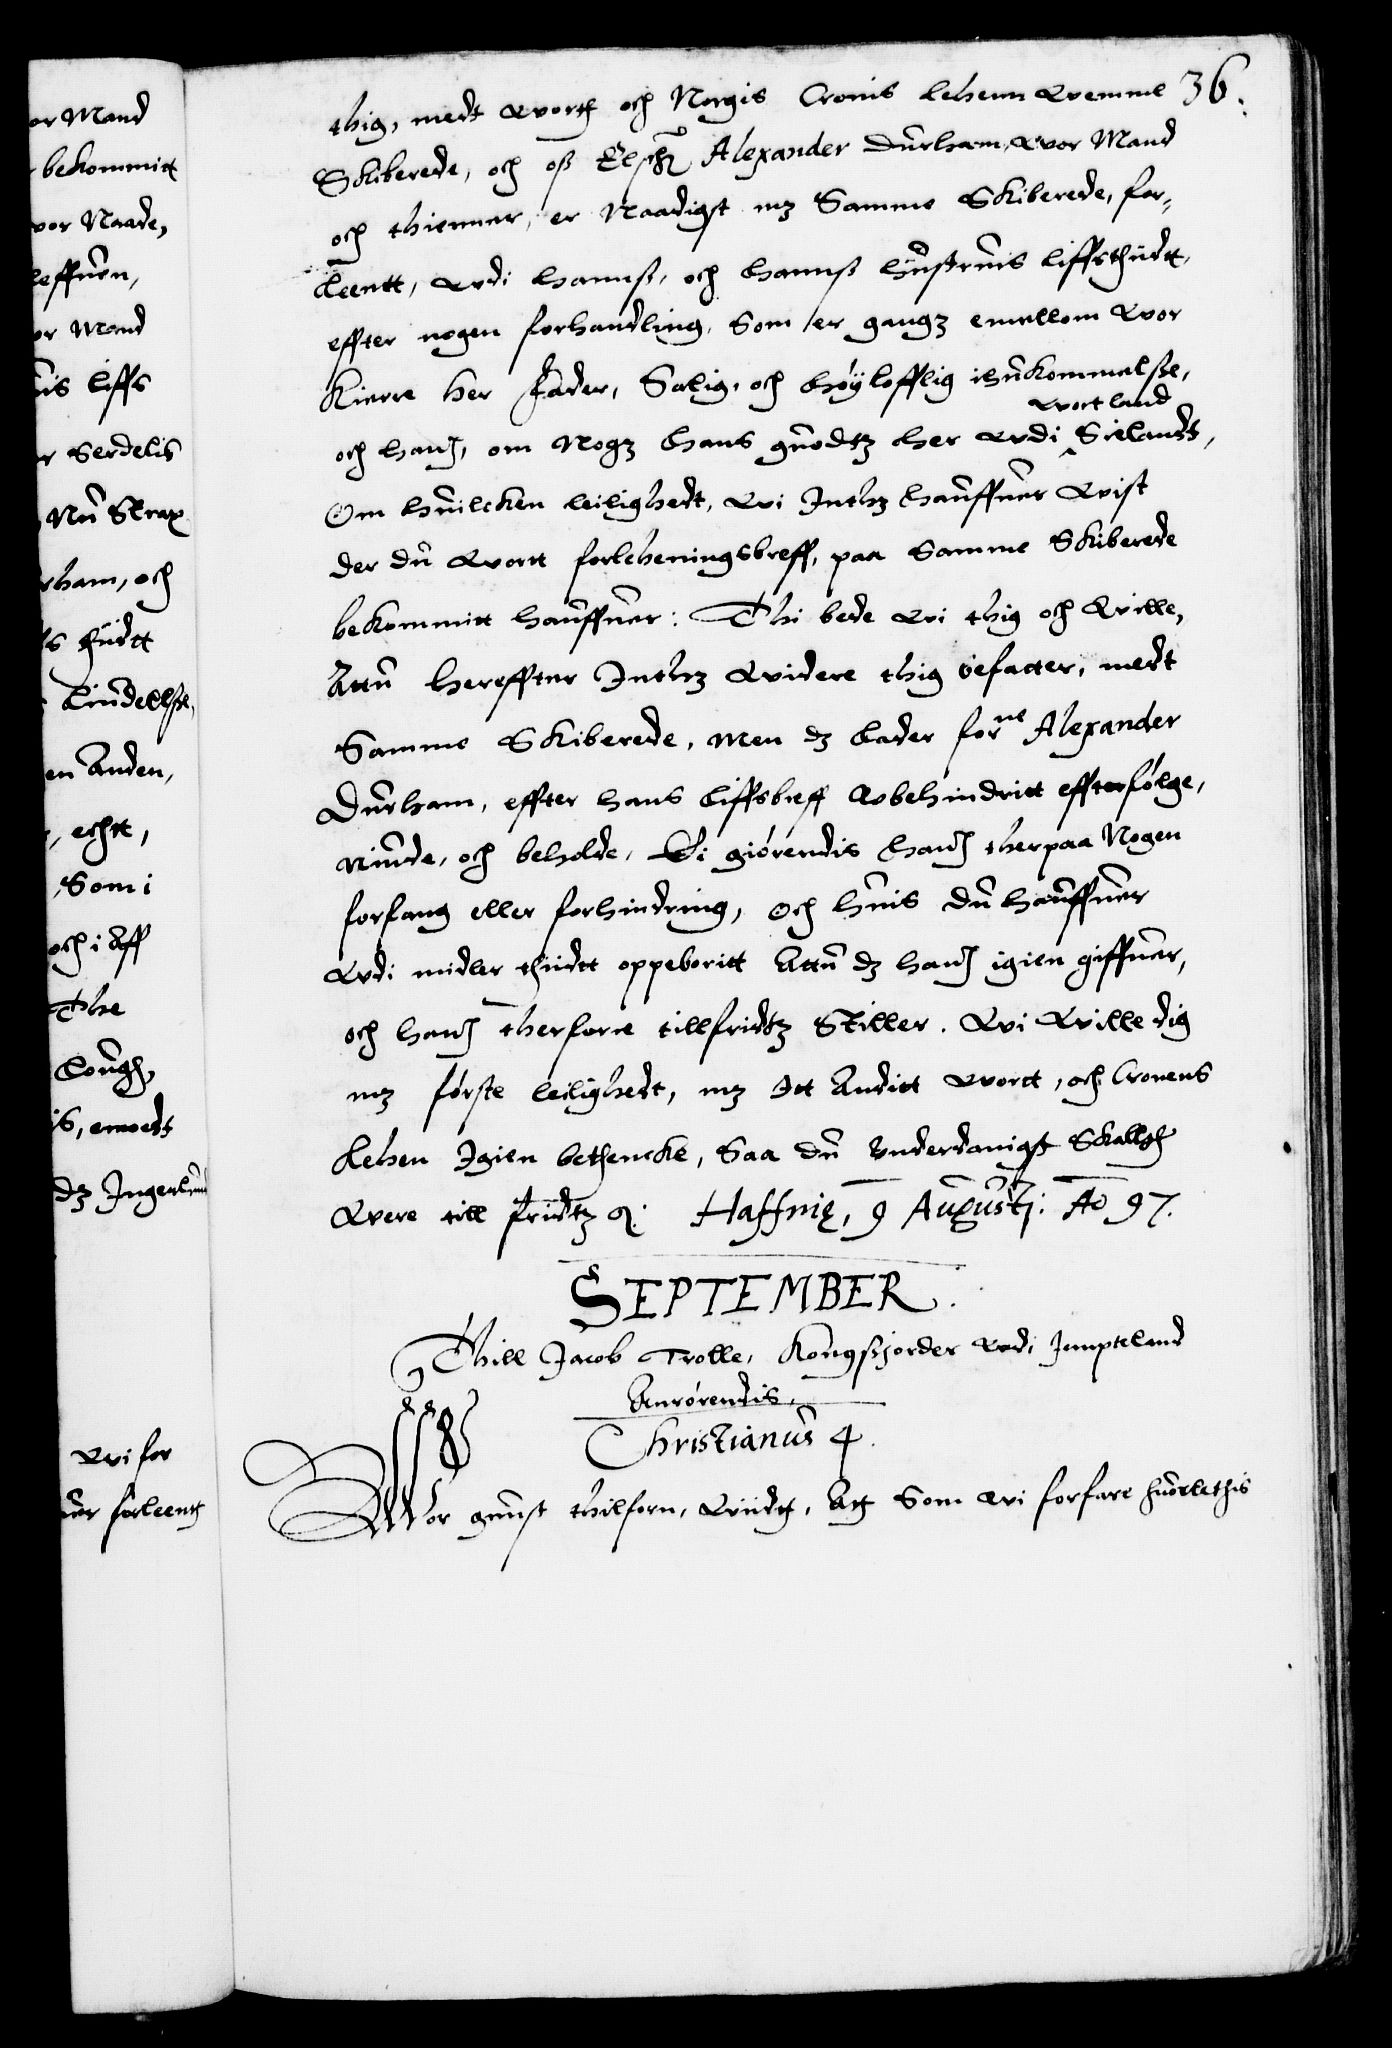 or Mand
bekommitt
vor Naade,
leffuen,
or Mand
is liffs
r Serdelis
Nu Strax
rham, och
ls thiidtt
Liudellsse,
en Anden,
, echtt,
, Som i
och i Aff
The
Lough,
is, emodtz
dz Ingenlund
Wi for
uer forleent
36.
thig, medt Wortt och Norgis Cronis lehenn Wemme
Skiberede, och oss Elsche Alexander Durham, Wor Mand
och thiennar, er Naadigst mz Samme Skiberede, for-
leentt, Wdi hannss, och hannss hustruis liffsthiidtt,
effter nogen forhandling, Som er gangz emellom Wor
Kierre her Fader, Salig, och høylofflig ihukommelsse,
wort land
och hand, om Nogz hans guodtz her Wdi Sielandt,
Om huilcken leilighedt, Wi Inthz haffuer Wist
der du Wortt forleheningsbreff, paa Samme Skiberede
bekommitt haffuer: Thi bede Wi thig och Wille,
Attu hereffter Inthz Widere thig befatter, medt
Samme Skiberede, Men dz lader forne Alexander
Durham, effter hans liffsbreff Wbehindritt effterfølge,
Niude, och beholde, Ei giørendis hand therpaa Nogen
forfang eller forhindring, Och huis du haffuer
Wdi midler thiidtt oppeboritt Attu dz hand igien giffuer,
och hand therforre tillfridtz Stiller. Wi Wille dig
mz første leilighedt, mz Itt Anditt Wortt, och Cronens
Lehen Igien bethencke, Saa du Vnderdanigst Skallth
Were till fridtz Haffnię, 9 Augustj: Ao 97.
SEPTEMBER.
Thill Jacob Trolle, Kongssjorder Wdi Jempteland
Anrørendis.
Christianus 4.
Wor gunst thilforn, Wiidtt, Att Som Wi forfare huorlethis